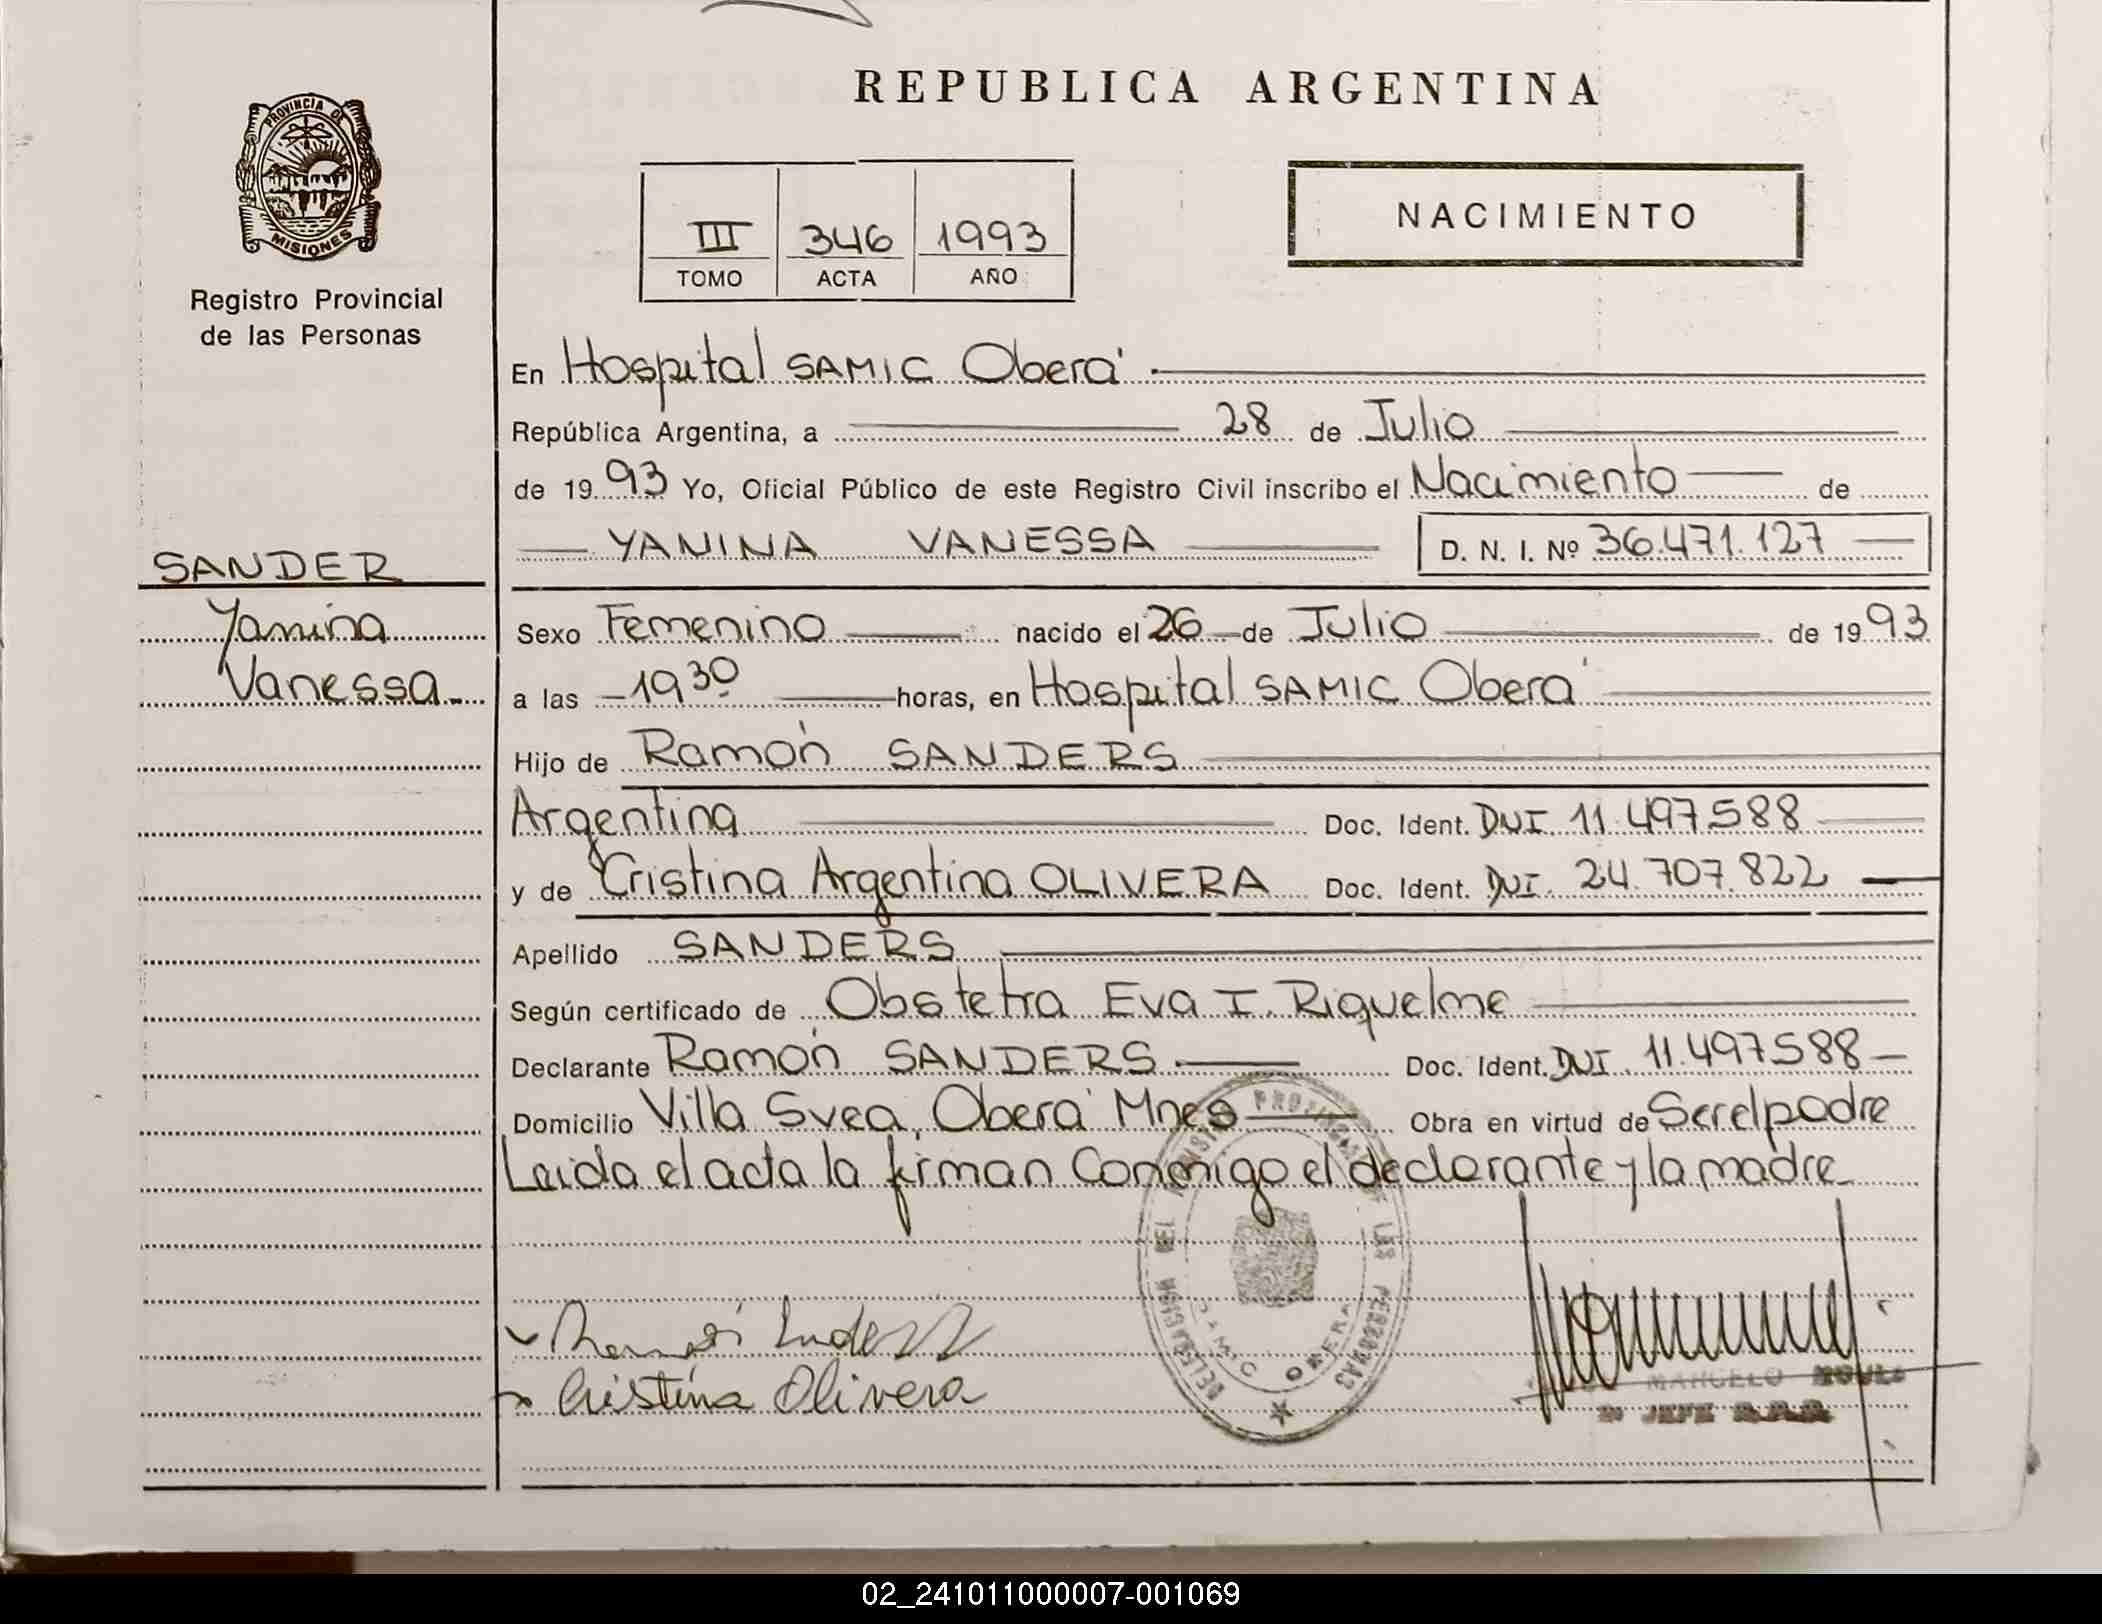 REPUBLICA ARGENTINA
PROVINCIA DE
MISIONES
Registro Provincial
de las Personas
III 346 1993
TOMO ACTA AÑO
NACIMIENTO
En Hospital SAMIC Oberá
República Argentina, a 28 de Julio
de 1993 Yo, Oficial Público de este Registro Civil inscribo el Nacimiento de
YANINA VANESSA D. N. I. Nº 36.471.127
SANDER
Yanina
Vanessa
Sexo Femenino nacido el 26 de Julio de 1993
a las 19 30 horas, en Hospital SAMIC Oberá
Hijo de Ramón SANDERS
Argentina Doc. Ident. DNI 11.497.588
y de Cristina Argentina OLIVERA Doc. Ident. DNI. 24.707.822
Apellido SANDERS
Según certificado de Obstetra Eva I. Riquelme
Declarante Ramón SANDERS Doc. Ident. DNI. 11.497.588
Domicilio Villa Svea, Oberá Mnes Obra en virtud de Ser el padre
Leida el acta la firman Conmigo el declarante y la madre
SAMIC OBERA
Cristina Olivera
MARCELO
JEFE
02_241011000007-001069